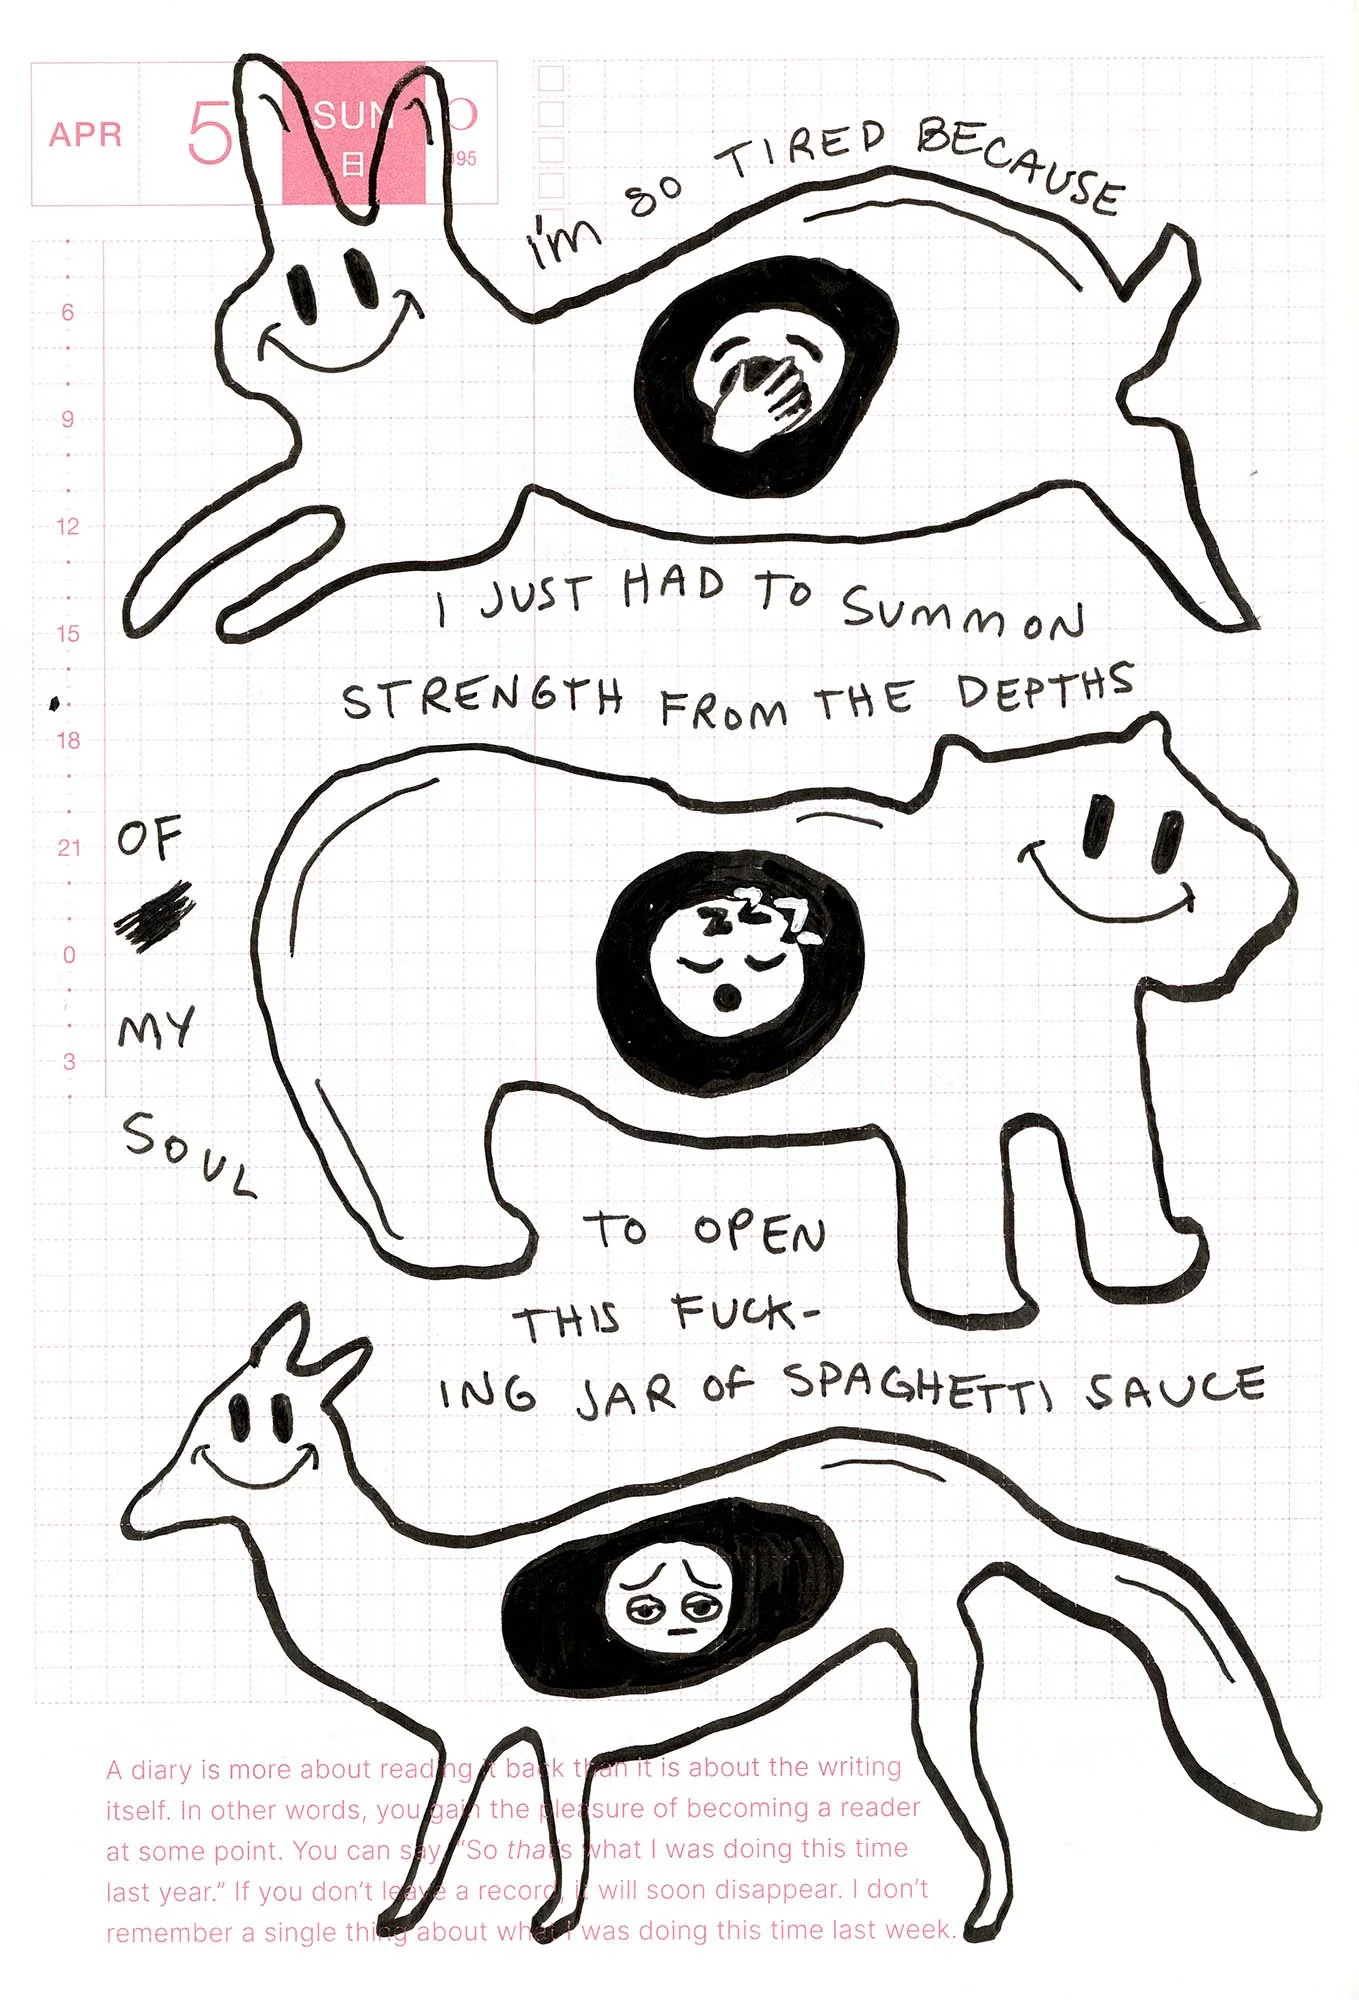 APR 5 SUN
日
195
I'm SO TIRED BECAUSE
6
9
12
15
18
21
0
3
I JUST HAD TO SUMMON
STRENGTH FROM THE DEPTHS
OF
MY
SOUL
TO OPEN
THIS FUCK-
ING JAR OF SPAGHETTI SAUCE
A diary is more about reading it back than it is about the writing
itself. In other words, you gain the pleasure of becoming a reader
at some point. You can say, “So that's what I was doing this time
last year.” If you don't leave a record, it will soon disappear. I don't
remember a single thing about what I was doing this time last week.